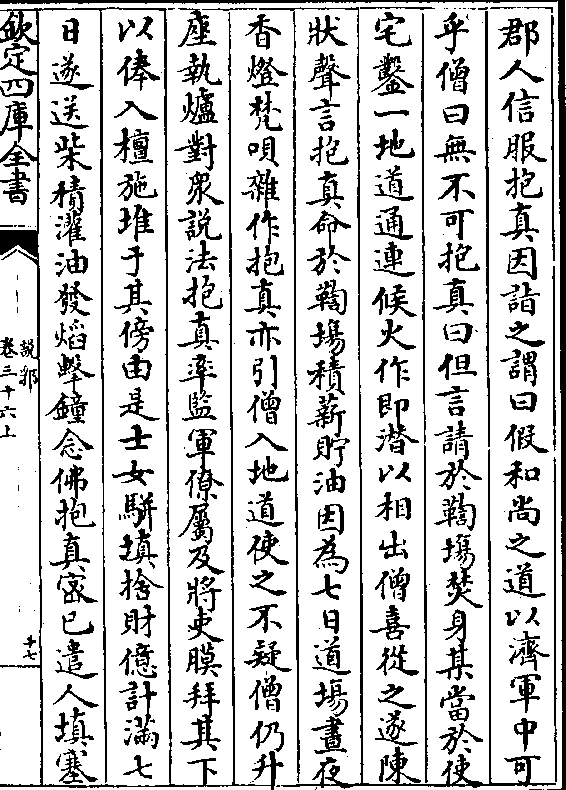 郡人信服抱真因詣之謂曰假和尚之道以濟軍中可
乎僧曰無不可抱真曰但言請於鞠場焚身某當於使
宅鑿一地道通連候火作即潛以相出僧喜從之遂陳
狀聲言抱真命於鞠場積薪貯油因為七日道場晝夜
香燈梵唄雜作抱真亦引僧入地道使之不疑僧仍升
座執爐對眾說法抱真率監軍僚屬及將吏膜拜其下
以俸入檀施堆于其傍由是士女駢填捨財億計滿七
日遂送柴積灌油發焰擊鐘念佛抱真密已遣人填塞
欽定四庫全書
說郛
卷三十六上
十七